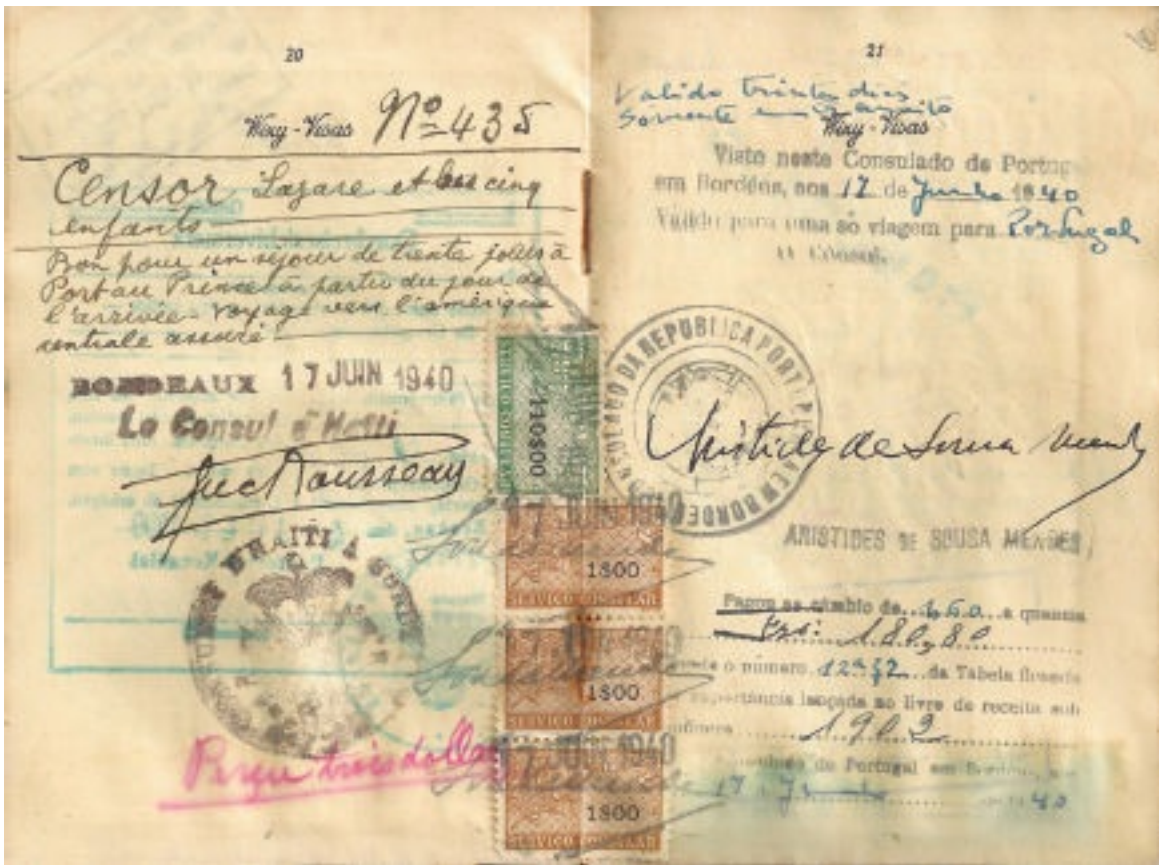 20
Wizy-Visas Nº 435
Censor Lazare et ses cinq
enfants
Bon pour un séjour de trente jours à
Port au Prince à partir du jour de
l'arrivée - voyage vers l'amérique
centrale assuré
BORDEAUX 17 JUIN 1940
Le Consul d'Haiti
D'HAITI A
Reçu trois dollars
110$00
17 JUIN 1940
1$00
SERVIÇO CONSULAR
17 JUIN 1940
1$00
SERVIÇO CONSULAR
17 JUIN 1940
1$00
SERVIÇO CONSULAR
21
Valido trinta dias
Somente em transito
Wizy-Visas
Visto neste Consulado de Portugal
em Bordéus, aos 17 de Junho 1940
Válido para uma só viagem para Portugal
O Cônsul,
CONSULADO DA REPUBLICA PORTUGUESA EM BORDEUS
Aristides de Sousa Mendes
ARISTIDES DE SOUSA MENDES
Pagou ao câmbio de 1,60 a quantia
180,80
o número da Tabela
importância lançada no livro de receita sob
1902
Consulado de Portugal em Bordéus,
17 Junho 40